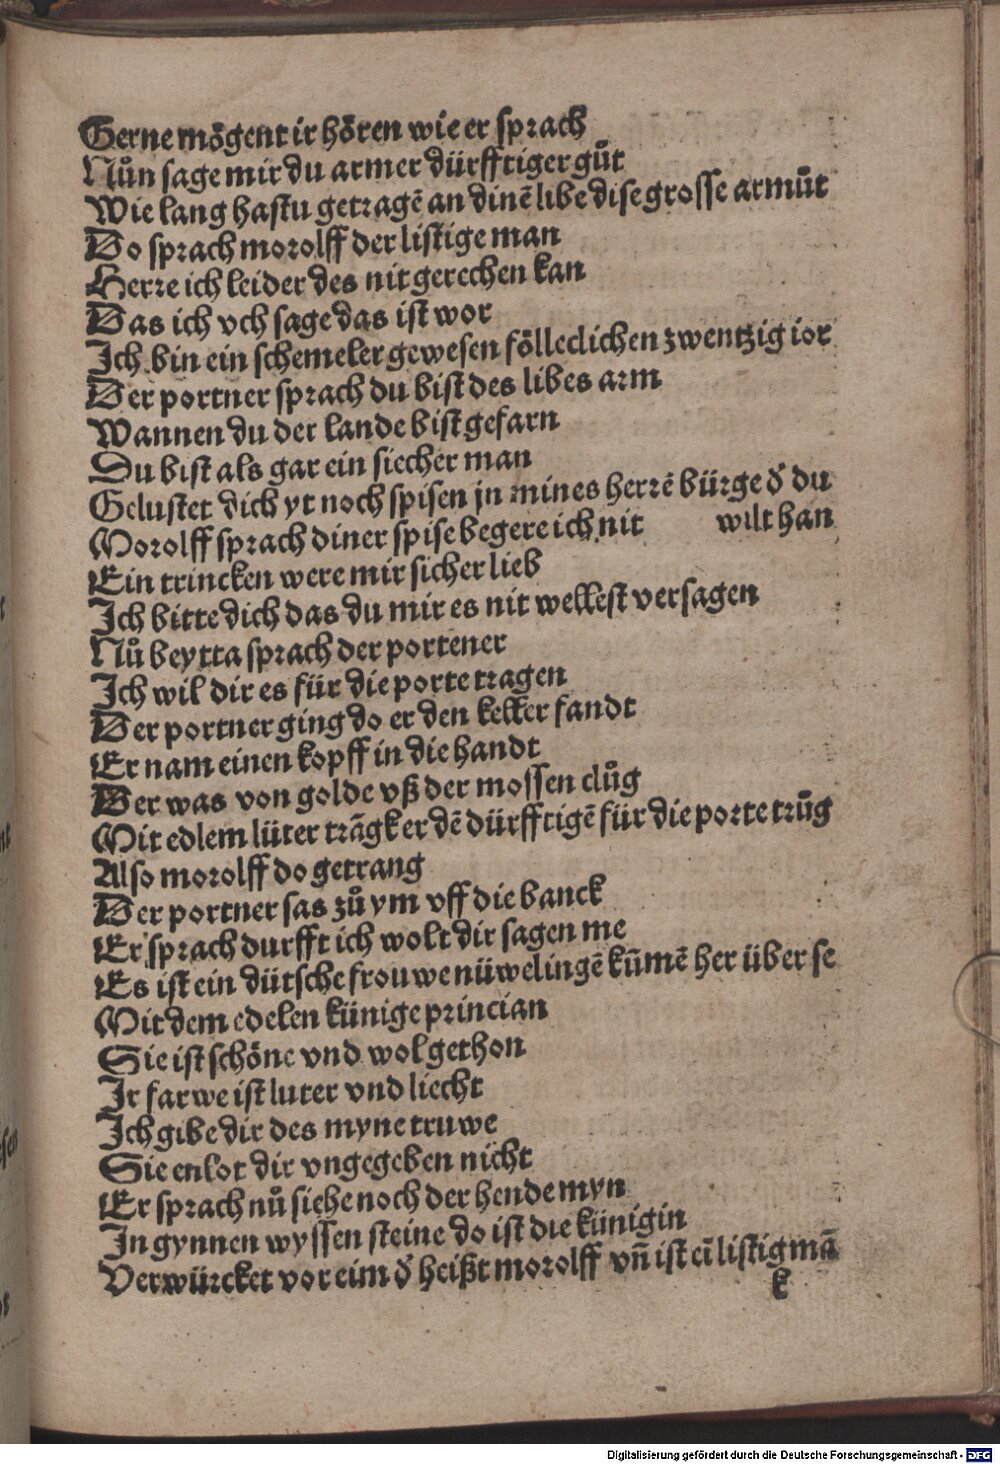 Gerne mögent ir hören wie er sprach
Nůn sage mir du armer dürfftiger gůt
Wie lang hastu getragē an dinē libe dise grosse armůt
Do sprach morolff der listige man
Herre ich leider des nit gerechen kan
Das ich vch sage das ist wor
Ich bin ein schemeler gewesen fölleclichen zwentzig ior
Der portner sprach du bist des libes arm
Wannen du der lande bist gefarn
Du bist als gar ein siecher man
Gelustet dich yt noch spisen jn mines herrē bürge d' du
Morolff sprach diner spise begere ich nit wilt han
Ein trincken were mir sicher lieb
Ich bitte dich das du mir es nit wellest versagen
Nů beytta sprach der portener
Ich wil dir es für die porte tragen
Der portner ging do er den keller fandt
Er nam einen kopff in die handt
Der was von golde vß der mossen clůg
Mit edlem lüter trāgk er dē dürfftigē für die porte trůg
Also morolff do getrang
Der portner sas zů ym vff die banck
Er sprach durfft ich wolt dir sagen me
Es ist ein dütsche frouwe nüwelingē kūmē her über se
Mit dem edelen künige princian
Sie ist schöne vnd wol gethon
Ir farwe ist luter vnd liecht
Ich gibe dir des myne truwe
Sie enlot dir vngegeben nicht
Er sprach nů siehe noch der hende myn
In gynnen wyssen steine do ist die künigin
Verwürcket vor eim d' heißt morolff vn̄ ist eī listig mā
k
Digitalisierung gefördert durch die Deutsche Forschungsgemeinschaft - DFG